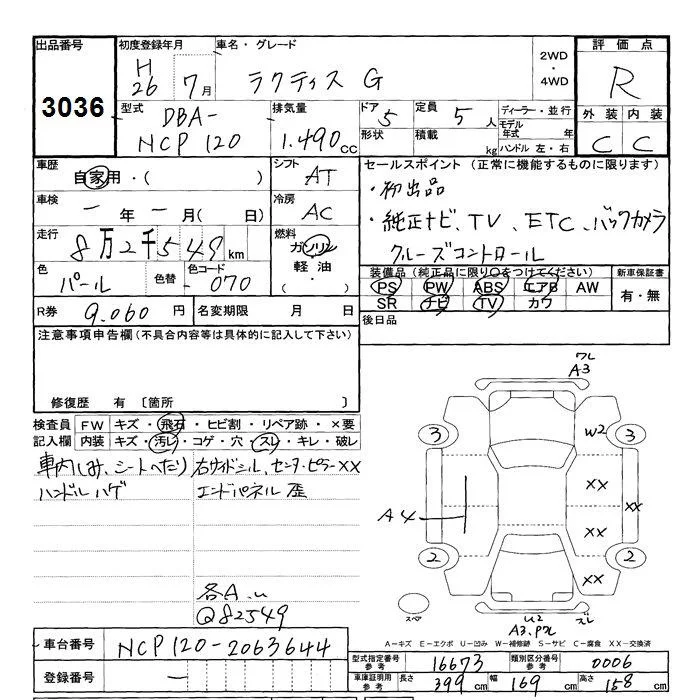 出品番号 初度登録年月 車名・グレード 2WD・4WD 評価点
3036 H26 7月 ラクティス G R
型式 DBA-NCP120 排気量 1.490cc ドア 5 形状 定員 5人 積載 kg ディーラー・並行 モデル年式 年 ハンドル 左・右 外装 内装
C C
車歴 自家用・( ) シフト AT セールスポイント (正常に機能するものに限ります)
車検 ー年ー月( 日) 冷房 AC ・初出品
・純正ナビ、TV、ETC、バックカメラ
走行 8万2千549km 燃料 ガソリン・軽油・ クルーズコントロール
色 パール 色替 色コード 070 装備品 (純正品に限り○をつけてください) 新車保証書
PS PW ABS エアB AW 有・無
SR ナビ TV カワ
R券 9.060円 名変期限 月 日 後日品
注意事項申告欄(不具合内容等は具体的に記入して下さい)
修復歴 有 〔箇所 〕
検査員 FW キズ・飛石・ヒビ割・リペア跡・×要
記入欄 内装 キズ・汚レ・コゲ・穴・スレ・キレ・破レ
車内しみ、シートへたり 右サイドシル、センターピラーXX
ハンドルハゲ エンドパネル歪
各A.u
Q82549
ワレ
A3
3 W2 3
XX
XX XX
A4
2 XX 2
スペア U2 ズレ
A3.Pワレ
A-キズ E-エクボ U-凹み W-補修跡 S-サビ C-腐食 XX-交換済
車台番号 NCP120-2063644
型式指定番号参考 16673 類別区分番号参考 0006
登録番号 ー
車庫証明用参考 長さ 399cm 幅 169cm 高さ 158cm